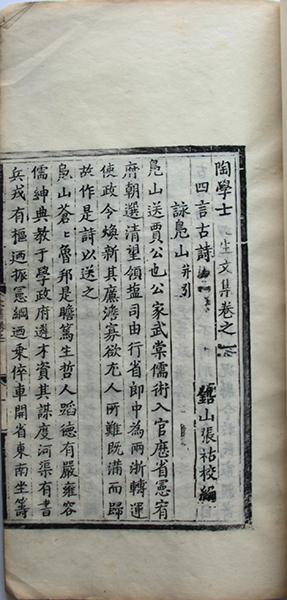 陶學士生文集卷之
四言古詩 山張祜校編
詠鳧山并引
鳧山送賈公也公家武棠儒術入官歷省憲宥
府朝選清望領鹽司由行省郎中為兩浙轉運
使政令煥新其廉澹寡欲尤人所難既滿而歸
故作是詩以送之
鳧山蒼〻魯邦是瞻篤生哲人蹈德有嚴雍容
儒紳典教于學政府遴才資其謀度河渠有書
兵戎有樞迺振憲綱迺乘倅車開省東南坐籌